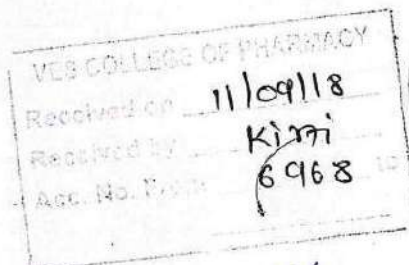 VES COLLEGE OF PHARMACY
Received on 11/09/18
Received by Kirti
Acc. No. From 6968 to